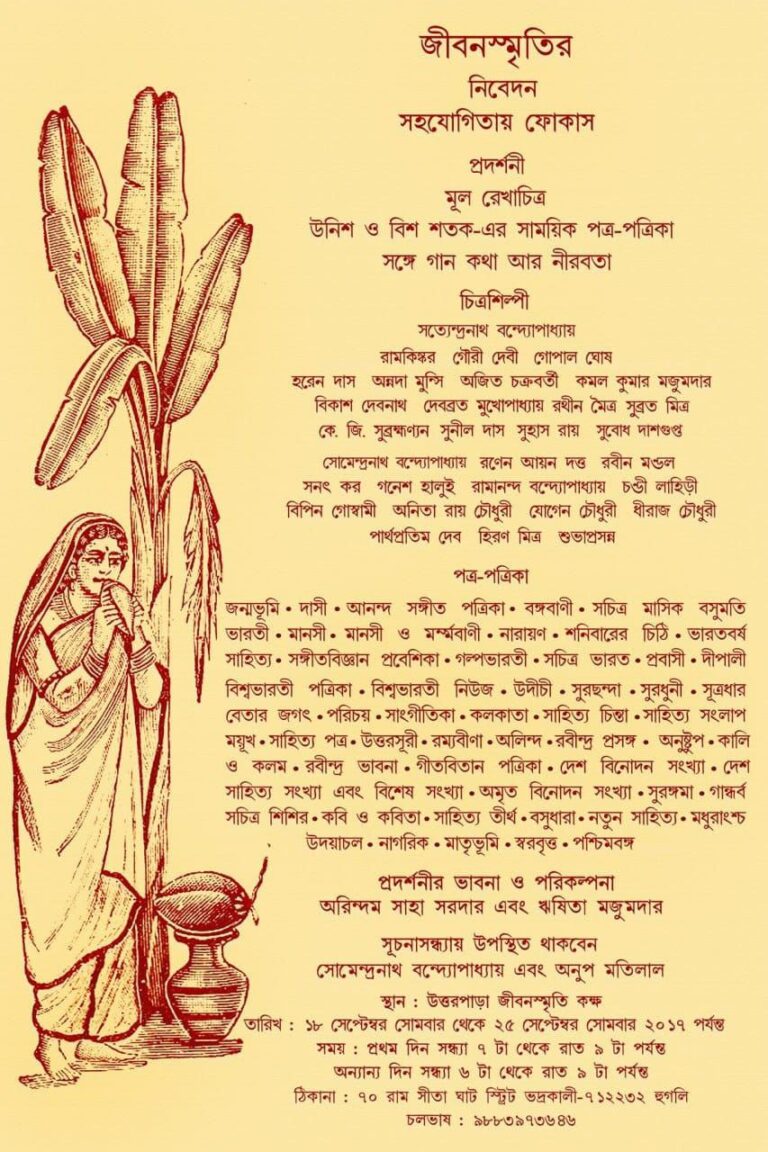 জীবনস্মৃতির
নিবেদন
সহযোগিতায় ফোকাস
প্রদর্শনী
মূল রেখাচিত্র
উনিশ ও বিশ শতক-এর সাময়িক পত্র-পত্রিকা
সঙ্গে গান কথা আর নীরবতা
চিত্রশিল্পী
সত্যেন্দ্রনাথ বন্দ্যোপাধ্যায়
রামকিঙ্কর গৌরী দেবী গোপাল ঘোষ
হরেন দাস অন্নদা মুন্সি অজিত চক্রবর্তী কমল কুমার মজুমদার
বিকাশ দেবনাথ দেবব্রত মুখোপাধ্যায় রথীন মৈত্র সুব্রত মিত্র
কে. জি. সুব্রহ্মণ্যন সুনীল দাস সুহাস রায় সুবোধ দাশগুপ্ত
সোমেন্দ্রনাথ বন্দ্যোপাধ্যায় রণেন আয়ন দত্ত রবীন মণ্ডল
সনৎ কর গনেশ হালুই রামানন্দ বন্দ্যোপাধ্যায় চণ্ডী লাহিড়ী
বিপিন গোস্বামী অনিতা রায় চৌধুরী যোগেন চৌধুরী ধীরাজ চৌধুরী
পার্থপ্রতিম দেব হিরণ মিত্র শুভাপ্রসন্ন
পত্র-পত্রিকা
জন্মভূমি • দাসী • আনন্দ সঙ্গীত পত্রিকা • বঙ্গবাণী • সচিত্র মাসিক বসুমতি
ভারতী • মানসী • মানসী ও মর্ম্মবাণী • নারায়ণ • শনিবারের চিঠি • ভারতবর্ষ
সাহিত্য • সঙ্গীতবিজ্ঞান প্রবেশিকা • গল্পভারতী • সচিত্র ভারত • প্রবাসী • দীপালী
বিশ্বভারতী পত্রিকা • বিশ্বভারতী নিউজ • উদীচী • সুরছন্দা • সুরধুনী • সূত্রধার
বেতার জগৎ • পরিচয় • সাংগীতিকা • কলকাতা • সাহিত্য চিন্তা • সাহিত্য সংলাপ
ময়ূখ • সাহিত্য পত্র • উত্তরসূরী • রম্যবীণা • অলিন্দ • রবীন্দ্র প্রসঙ্গ • অনুষ্টুপ • কালি
ও কলম • রবীন্দ্র ভাবনা • গীতবিতান পত্রিকা • দেশ বিনোদন সংখ্যা • দেশ
সাহিত্য সংখ্যা এবং বিশেষ সংখ্যা • অমৃত বিনোদন সংখ্যা • সুরঙ্গমা • গান্ধর্ব
সচিত্র শিশির • কবি ও কবিতা • সাহিত্য তীর্থ • বসুধারা • নতুন সাহিত্য • মধুরাংশ্চ
উদয়াচল • নাগরিক • মাতৃভূমি • স্বরবৃত্ত • পশ্চিমবঙ্গ
প্রদর্শনীর ভাবনা ও পরিকল্পনা
অরিন্দম সাহা সরদার এবং ঋষিতা মজুমদার
সূচনাসন্ধ্যায় উপস্থিত থাকবেন
সোমেন্দ্রনাথ বন্দ্যোপাধ্যায় এবং অনুপ মতিলাল
স্থান : উত্তরপাড়া জীবনস্মৃতি কক্ষ
তারিখ : ১৮ সেপ্টেম্বর সোমবার থেকে ২৫ সেপ্টেম্বর সোমবার ২০১৭ পর্যন্ত
সময় : প্রথম দিন সন্ধ্যা ৭ টা থেকে রাত ৯ টা পর্যন্ত
অন্যান্য দিন সন্ধ্যা ৬ টা থেকে রাত ৯ টা পর্যন্ত
ঠিকানা : ৭০ রাম সীতা ঘাট স্ট্রিট ভদ্রকালী-৭১২২৩২ হুগলি
চলভাষ : ৯৮৮৩৯৭৩৬৪৬